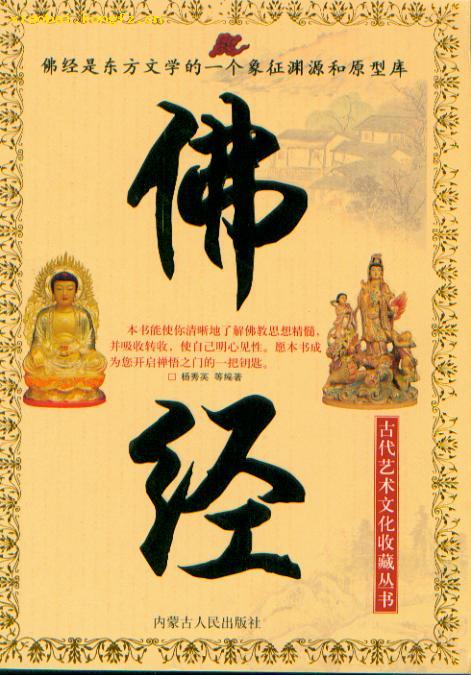 佛经是东方文学的一个象征渊源和原型库
佛
本书能使你清晰地了解佛教思想精髓,
并吸收转收，使自己明心见性。愿本书成
为您开启禅悟之门的一把钥匙。
□ 杨秀英 等编著
经
古代艺术文化收藏丛书
内蒙古人民出版社